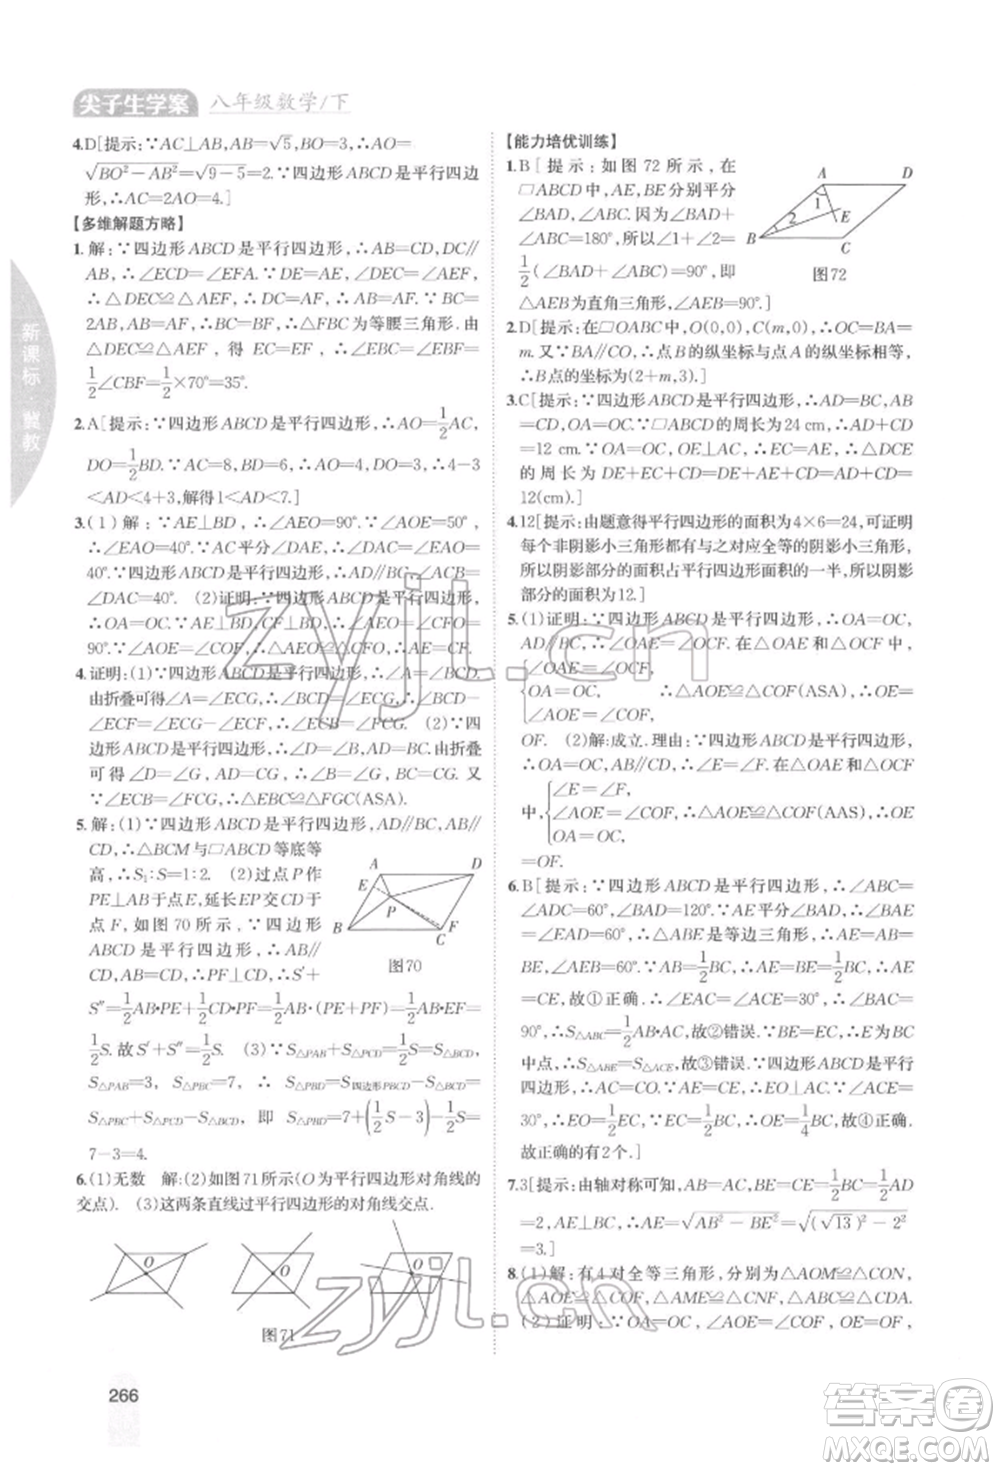 尖子生学案 八年级数学/下
4.D[提示:∵AC⊥AB,AB=√5,BO=3,∴AO=
√(BO²-AB²)=√(9-5)=2.∵四边形ABCD是平行四边
形,∴AC=2AO=4.]
【多维解题方略】
1.解:∵四边形ABCD是平行四边形,∴AB=CD,DC∥
AB,∴∠ECD=∠EFA.∵∠DEC=∠AEF,
∴△DEC≌△AEF,∴DC=AF,∴AB=AF.∵BC=
2AB,AB=AF,∴BC=BF,∴△FBC为等腰三角形.由
△DEC≌△AEF,得EC=EF,∴∠EBC=∠EBF=
1/2∠CBF=1/2×70°=35°.
2.A[提示:∵四边形ABCD是平行四边形,∴AO=1/2AC,
DO=1/2BD.∵AC=8,BD=6,∴AO=4,DO=3,∴4-3
<AD<4+3,解得1<AD<7.]
3.(1)解:∵AE⊥BD,∴∠AEO=90°.∵∠AOE=50°,
∴∠EAO=40°.∵AC平分∠DAE,∴∠DAC=∠EAO=
40°.∵四边形ABCD是平行四边形,∴AD∥BC,∴∠ACB=
∠DAC=40°.(2)证明:∵四边形ABCD是平行四边形,
∴OA=OC.∵AE⊥BD,CF⊥BD,∴∠AEO=∠CFO=
90°.∵∠AOE=∠COF,∴△AEO≌△CFO,∴AE=CF.
4.证明:(1)∵四边形ABCD是平行四边形,∴∠A=∠BCD.
由折叠可得∠A=∠ECG,∴∠BCD=∠ECG,∴∠BCD-
∠ECF=∠ECG-∠ECF,∴∠ECB=∠FCG.(2)∵四
边形ABCD是平行四边形,∴∠D=∠B,AD=BC.由折叠
可得∠D=∠G,AD=CG,∴∠B=∠G,BC=GC.又
∵∠ECB=∠FCG,∴△EBC≌△FGC(ASA).
5.解:(1)∵四边形ABCD是平行四边形,AD∥BC,AB∥
CD,∴△BCM与□ABCD等底等
高,∴S₁:S=1:2.(2)过点P作
PE⊥AB于点E,延长EP交CD于
点F,如图70所示,∵四边形
ABCD是平行四边形,∴AB=
CD,AB∥CD,∴PF⊥CD,∴S′+
A D E P B C F
图70
S″=1/2AB·PE+1/2CD·PF=1/2AB·(PE+PF)=1/2AB·EF=
1/2S.故S′+S″=1/2S.(3)∵S△PAB+S△PCD=1/2S=S△BCD,
S△PAB=3,S△PBC=7,∴S△PBD=S四边形PBCD-S△BCD=
S△PBC+S△PCD-S△BCD,即S△PBD=7+(1/2S-3)-1/2S=
7-3=4.
6.(1)无数 解:(2)如图71所示(O为平行四边形对角线的
交点).(3)这两条直线过平行四边形的对角线的交点.
O O O
图71
【能力培优训练】
1.B[提示:如图72所示,在
□ABCD中,AE,BE分别平分
∠BAD,∠ABC.∵∠BAD+
∠ABC=180°,所以∠1+∠2=
1/2(∠BAD+∠ABC)=90°,即
△AEB为直角三角形,∠AEB=90°.]
A D 1 2 E B C
图72
2.D[提示:在□OABC中,O(0,0),C(m,0),∴OC=BA=
m.又∵BA∥CO,∴点B的纵坐标与点A的纵坐标相等,
∴B点的坐标为(2+m,3).]
3.C[提示:∵四边形ABCD是平行四边形,∴AD=BC,
OA=OC.∵□ABCD的周长为24 cm,∴AD+CD
=12 cm.∵OA=OC,OE⊥AC,∴EC=AE,∴△DCE
的周长为DE+EC+CD=DE+EA+CD=AD+CD=
12(cm).]
4.12[提示:由题意得平行四边形的面积为4×6=24,可证明
每个非阴影小三角形都有与之对应全等的阴影小三角形,
所以阴影部分的面积占平行四边形面积的一半,所以阴影
部分的面积为12.]
5.(1)证明:∵四边形ABCD是平行四边形,∴OA=OC,
AD∥BC,∴∠OAE=∠OCF.在△OAE和△OCF中,
{∠OAE=∠OCF,
OA=OC, ∴△AOE≌△COF(ASA),∴OE=
∠AOE=∠COF,
OF.(2)解:成立.理由:∵四边形ABCD是平行四边形,
∴OA=OC,AB∥CD,∴∠E=∠F.在△AOE和△COF
中,{∠E=∠F,
∠AOE=∠COF,∴△AOE≌△COF(AAS),∴OE
OA=OC,
=OF.
6.B[提示:∵四边形ABCD是平行四边形,∴∠ABC=
∠ADC=60°,∠BAD=120°.∵AE平分∠BAD,∴∠BAE
=∠EAD=60°,∴△ABE是等边三角形,∴AE=AB=BE,
∠AEB=60°.∵AB=1/2BC,∴AE=BE=1/2BC,∴AE
=CE,故①正确.∴∠EAC=∠ACE=30°,∴∠BAC=
90°,∴S△ABC=1/2AB·AC,故②错误.∵BE=EC,∴E为BC
中点,∴S△ABE=S△ACE,故③错误.∵四边形ABCD是平行
四边形,∴AO=CO.∵AE=CE,∴EO⊥AC.∵∠ACE
=30°,∴EO=1/2EC.∵EC=1/2BC,∴OE=1/4BC,故④正确.
故正确的有2个.]
7.3[提示:由轴对称可知,AB=AC,BE=CE=1/2BC=1/2AD
=2,AE⊥BC,∴AE=√(AB²-BE²)=√((√13)²-2²)
=3.]
8.(1)解:有4对全等三角形,分别为△AOM≌△CON,
△AOE≌△COF,△AME≌△CNF,△ABC≌△CDA.
(2)证明:∵OA=OC,∠1=∠2,OE=OF,
新课标·冀教
zyjl.cn
zyjl.cn
266
答案圈
MXQE.COM